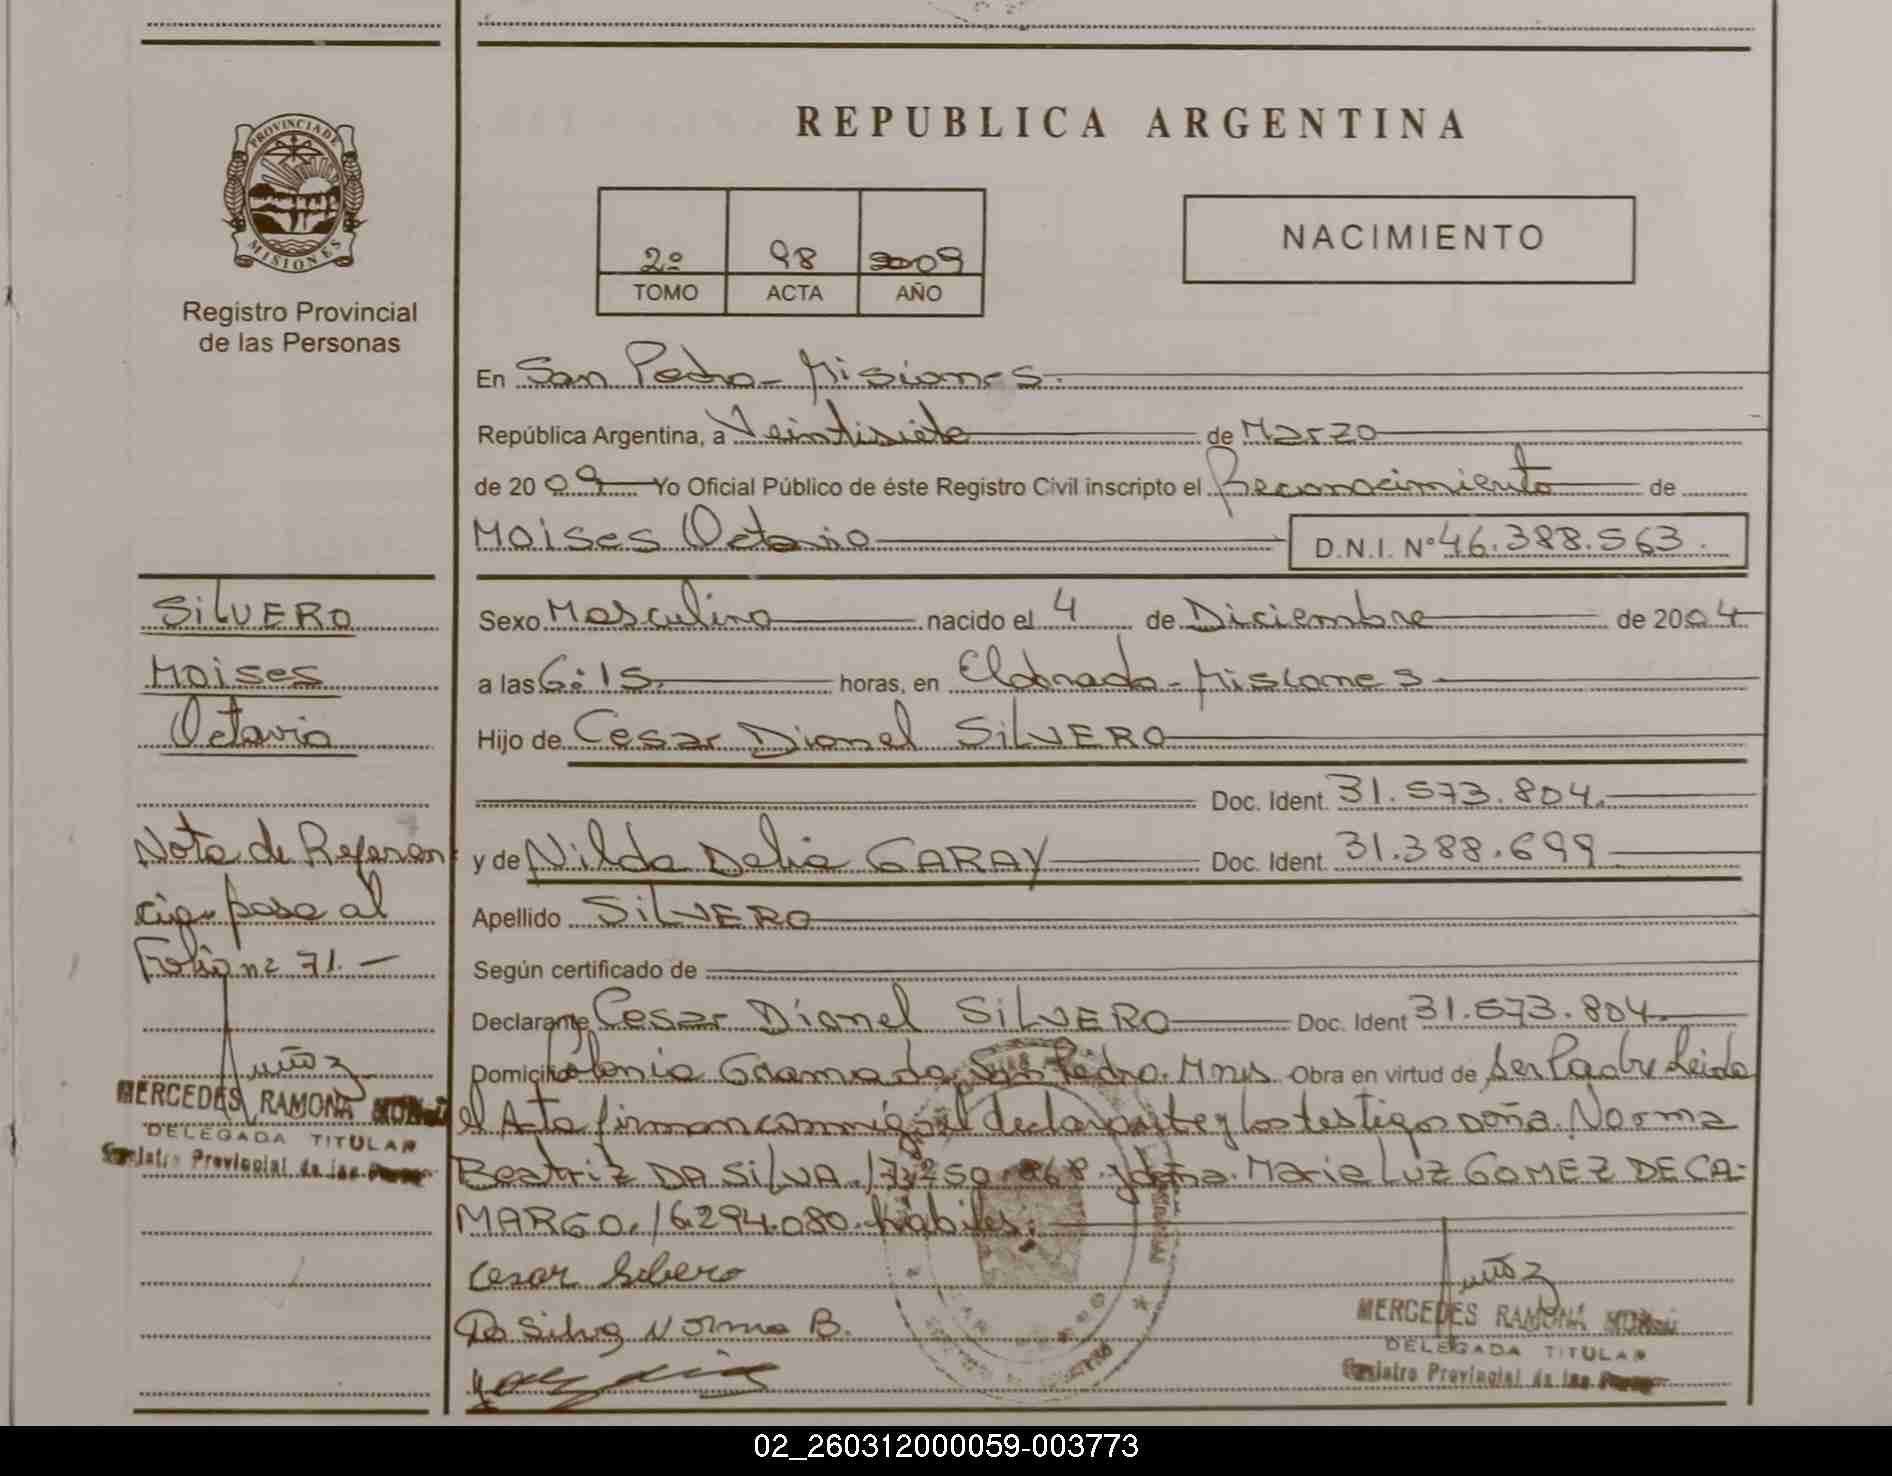 REPUBLICA ARGENTINA
PROVINCIA DE
MISIONES
Registro Provincial
de las Personas
2º 98 2009
TOMO ACTA AÑO
NACIMIENTO
En San Pedro - Misiones.
República Argentina, a Veintisiete de Marzo
de 2009 Yo Oficial Público de éste Registro Civil inscripto el Reconocimiento de
Moises Octavio D.N.I. Nº 46.388.563.
SILVERO
Moises
Octavio
Sexo Masculino nacido el 4 de Diciembre de 2004
a las 6:15 horas, en Eldorado - Misiones
Hijo de Cesar Dionel SILVERO
Doc. Ident. 31.573.804.
y de Nilda Delia GARAY Doc. Ident. 31.388.699
Nota de Referen
cia pasa al
Folio nº 71. -
Apellido SILVERO
Según certificado de
Declarante Cesar Dionel SILVERO Doc. Ident 31.573.804.
Domicilio Colonia Gramado San Pedro. Mnes Obra en virtud de ser Padre Leida
el Acta firman conmigo el declarante y los testigos doña Norma
Beatriz DA SILVA. 17.250.868. y doña Maria Luz GOMEZ DE CA-
MARGO. 16.294.080. habiles.
Cesar Silvero
Da Silva Norma B.
Muñoz
MERCEDES RAMONA
DELEGADA TITULAR
Registro Provincial de las
Muñoz
MERCEDES RAMONA
DELEGADA TITULAR
Registro Provincial de las
02_260312000059-003773